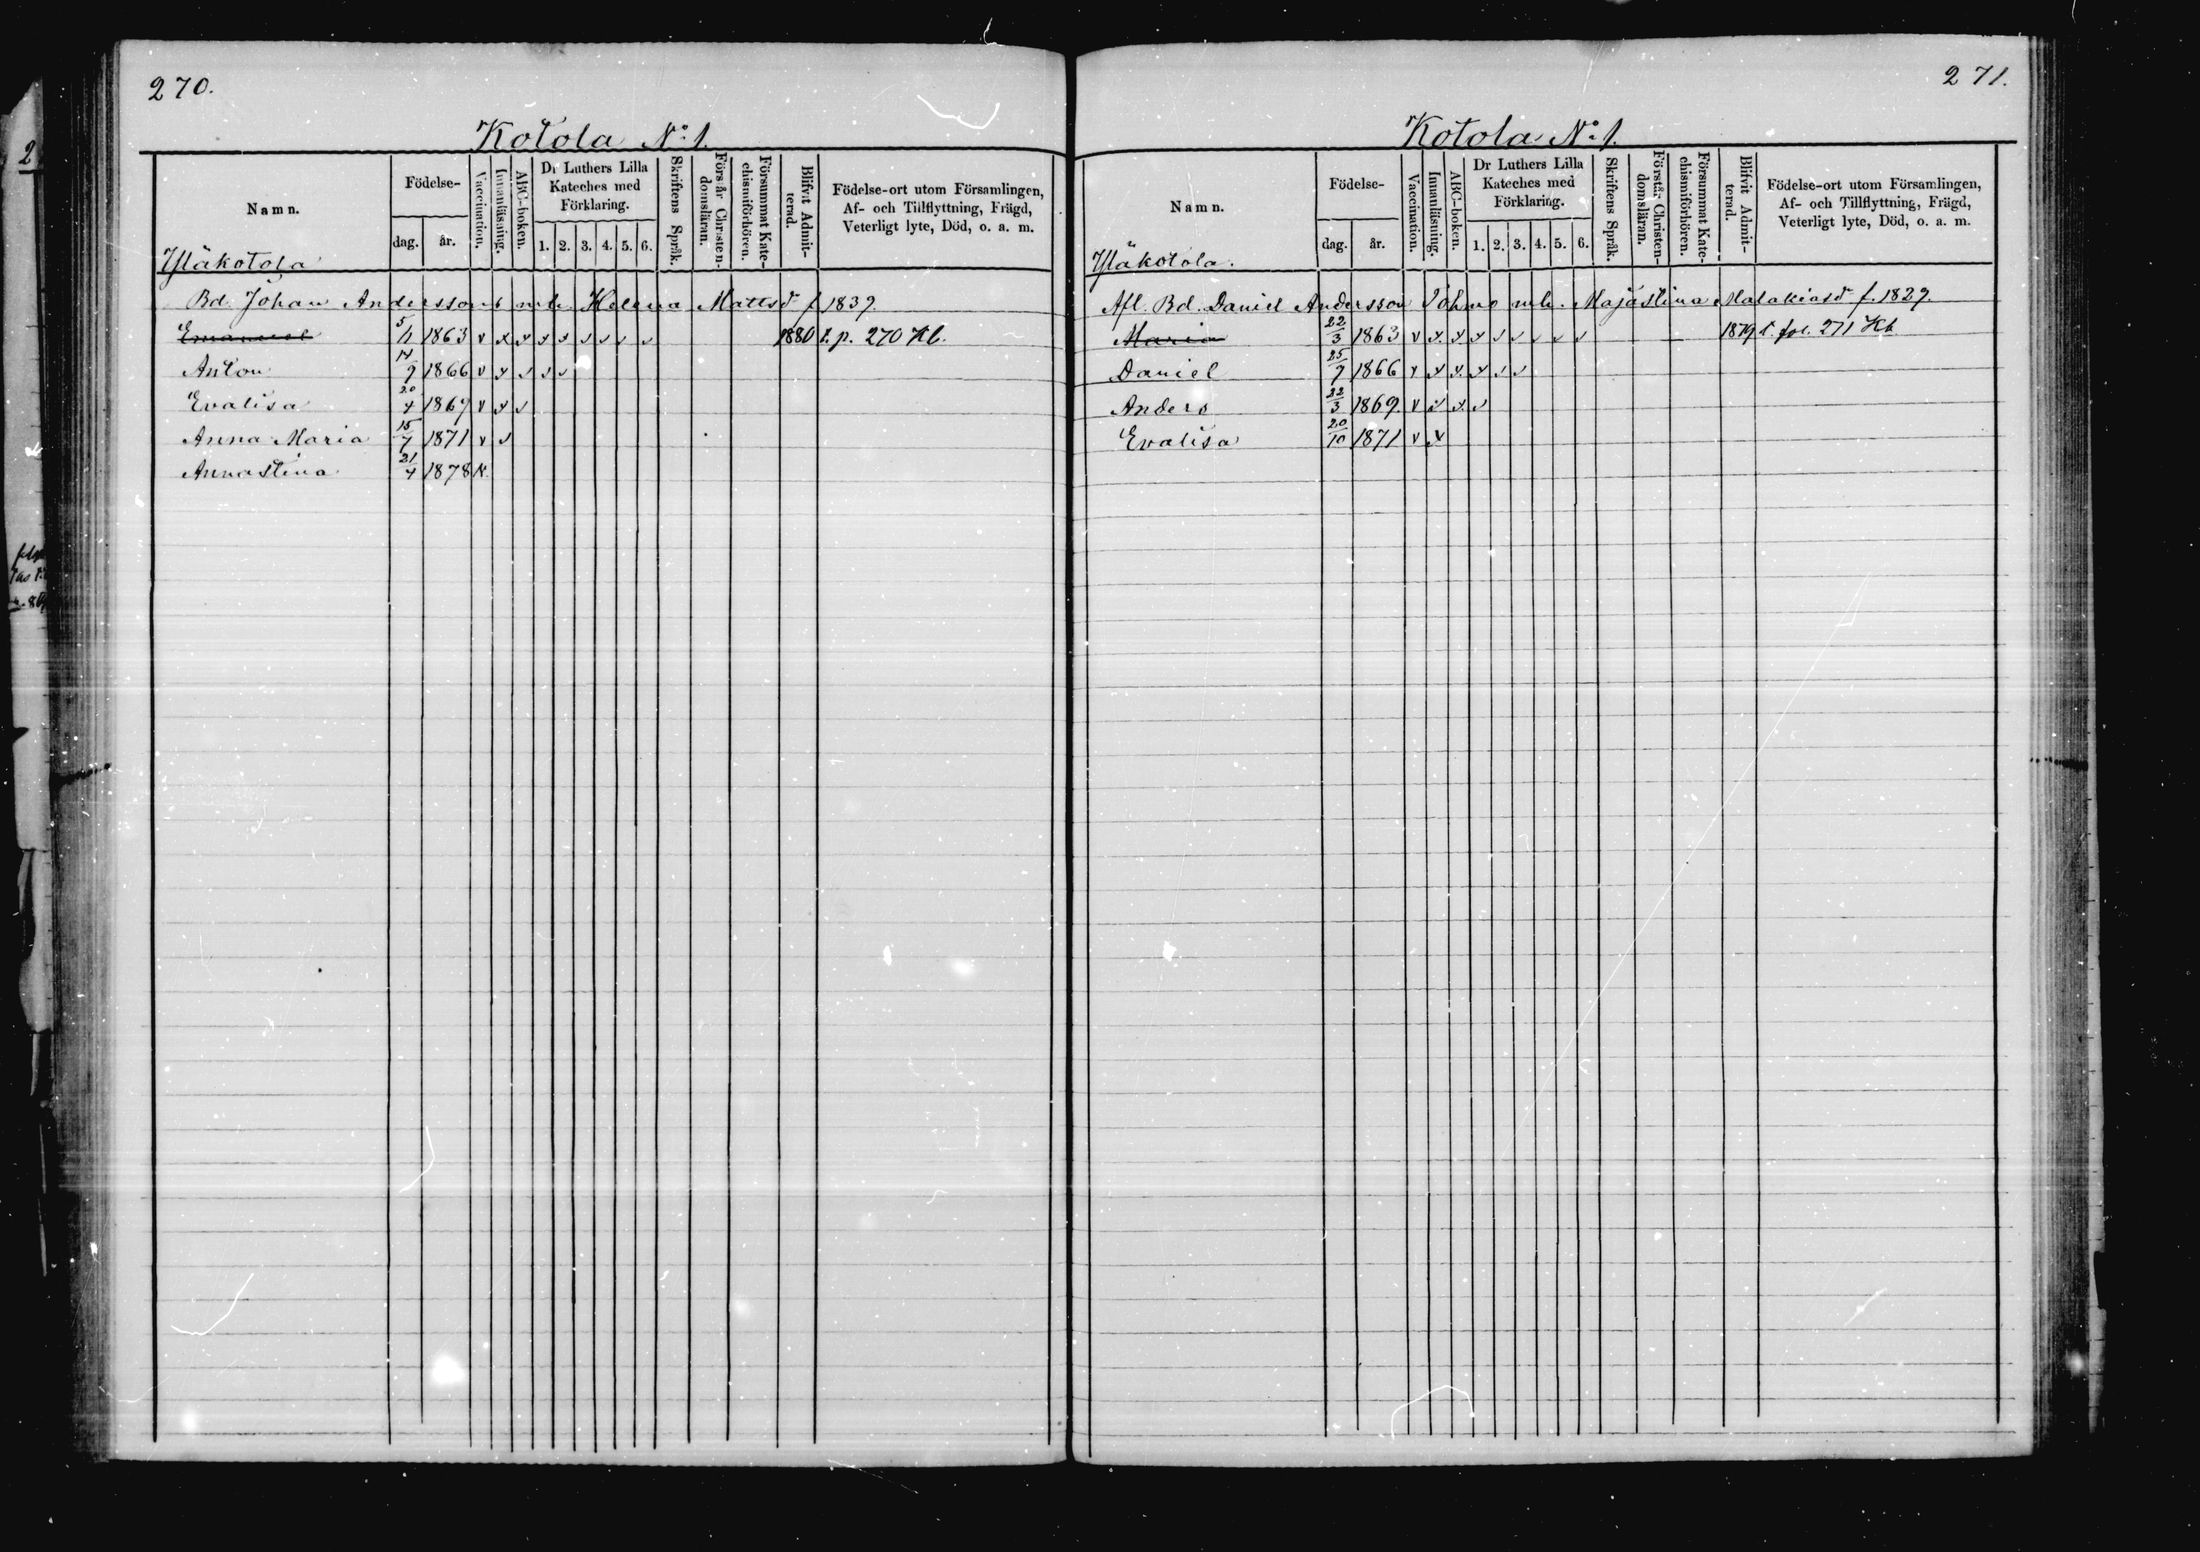 270.
Kotola No 1.
Namn.
Födelse-
dag.
år.
Vaccination.
Innanläsning.
ABC-boken.
Dr Luthers Lilla
Kateches med
Förklaring.
1. 2. 3. 4. 5. 6.
Skriftens Språk.
Förstår Christen-
domsläran.
Försummat Kate-
chismiförhören.
Blifvit Admit-
terad.
Födelse-ort utom Församlingen,
Af- och Tillflyttning, Frägd,
Veterligt lyte, Död, o. a. m.
Yläkotola
Bd. Johan Anderssons mh. Helena Mattsd f 1839.
Emanuel 5/11 1863 v x x x x v v v v 1880 t. p. 270 Kb.
Anton 14/9 1866 v x v v v
Evalisa 20/4 1869 v x v
Anna Maria 15/7 1871 v v
Annastina 21/4 1878
271.
Kotola No 1.
Namn.
Födelse-
dag.
år.
Vaccination.
Innanläsning.
ABC-boken.
Dr Luthers Lilla
Kateches med
Förklaring.
1. 2. 3. 4. 5. 6.
Skriftens Språk.
Förstår Christen-
domsläran.
Försummat Kate-
chismiförhören.
Blifvit Admit-
terad.
Födelse-ort utom Församlingen,
Af- och Tillflyttning, Frägd,
Veterligt lyte, Död, o. a. m.
Yläkotola.
Afl. Bd. Daniel Andersson mh. Majastina Malakiasd f. 1829.
Maria 22/3 1863 v x x x v v v v v — — 1879 t. fol. 271 Kb
Daniel 25/9 1866 v x x x v v
Anders 22/3 1869 v v x v
Evalisa 20/10 1871 v x